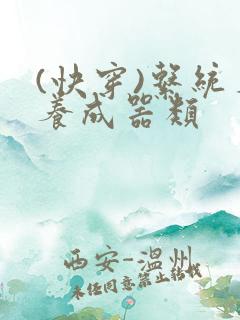 (快穿)繫統
養成器類
西安-温州
未经同意禁止转载